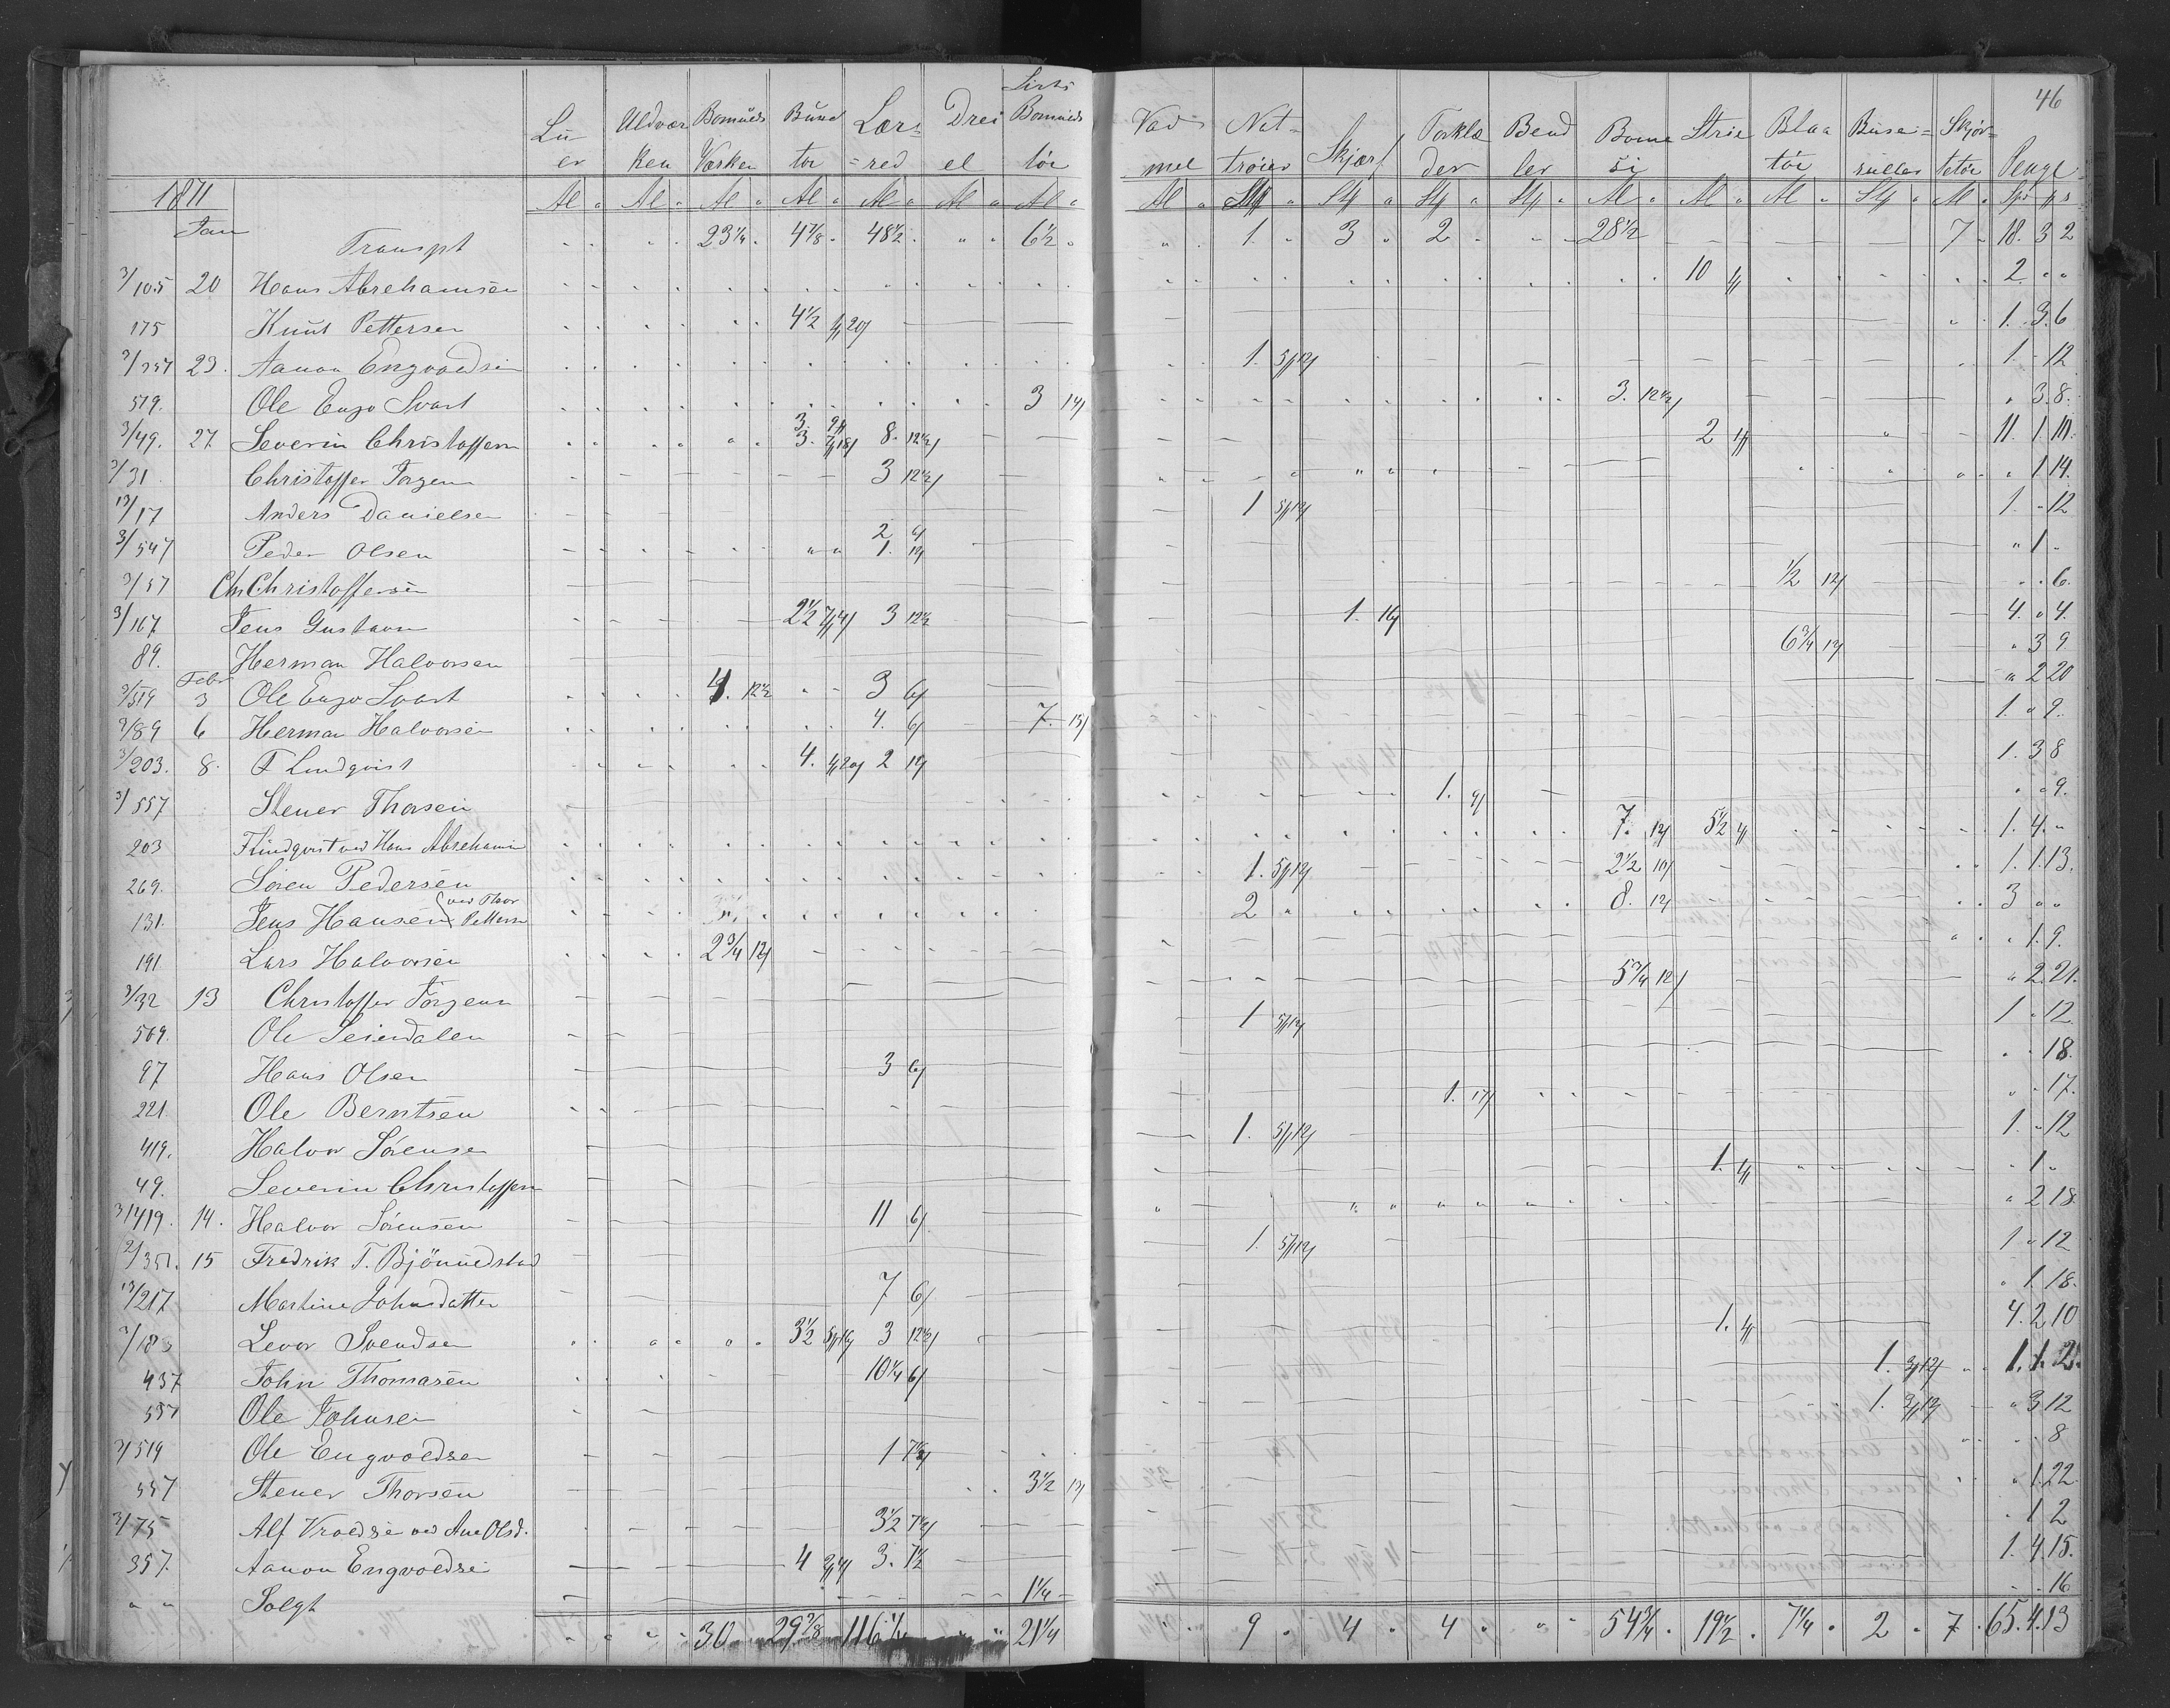 46
Lü er | Uldvær ken | Bomuls Værken | Bund tøi | Lær red | Drei el | Sirts Bomuls tøi | Vad mel | Nat trøier | Skjørt | Forklæ der | Bend ler | Bome si | Strie | Blaa tøi | Buse ruller | Skjor tetøi | Penge
1871 | Al | Al | Al | Al | Al | Al | Al | Al | St | St | St | St | Al | Al | Al | St | Al | Spd
Jan Transpt 23 1/4 4 7/8 48 1/2 6 1/2 1. 3 2 28 1/2 7 18. 3 2
3/105 20 Hans Abrehamsen 10 2
175 Knut Pettersen 4 1/2 1. 3. 6
3/357 23. Aanon Engvoldsen 1. 1 - 12
519. Ole Engv Svart 3 3. 3. 8.
3/49. 27 Severin Christoffersn 3. 3. 8. 2 11. 1.
3/31 Christoffer Jørgens 3 12 1/2 1 14.
13/17 Anders Danielsen 1 1 - 12
3/547 Peder Olsen 2 1. 1
3/57 Chr Christoffersen 1/2 12 6.
3/167 Jens Gustavsn 2 1/2 3 12 1/2 1. 16 4. 4.
89. Herman Halvorsen 6 3/4 3 9
Febr
3/519 3 Ole Engv Svart 4. 12 1/2 3 6 2 20
3/89 6 Herman Halvorsen 4. 6 7. 1. 9.
3/203. 8. F Lindqvist 4. 2 1. 3 8
3/557 Stener Thorsen 1. 9 9.
203 F Lindqvist ved Hans Abrehamsn 7. 12 5 1/2 1. 4.
269. Søren Pedersen 1. 2 1/2 10 1. 1. 13.
131. Jens Hansen ved Thor Petters 2 8. 12 3
191 Lars Halvorsen 2 3/4 12 1. 9.
3/32 13 Christoffer Jørgens 5 3/4 12 2. 21.
569. Ole Seierdalen 1 1 12
97 Hans Olsen 3 6 18.
221. Ole Berntsen 1. 17 17.
419. Halvor Sørensen 1. 1. 12
49. Severin Christoffersn 1. 1
3/419. 14. Halvor Sørensen 11 6 2 18
2/351. 15 Fredrik T. Bjønnedstad 1. 1 12
13/217 Martine Johnsdatter 7 6 1. 18.
Levor Svendsen 3 1/2 3 12 1/2 1. 4. 2 10
437 John Thomasen 10 1/4 6 1. 1. 1. 2.
557 Ole Johnsen 1. 3 12
3/519 Ole Engvoldsen 1 7 1/2 8
557 Stener Thorsen 3 1/2 1. 22
3/75 Alf Vroldse ved Ane Olsd. 3 1/2 7 1/2 1 2
357. Aanon Engvoldse 4 3. 7 1/2 1. 4. 15.
Solgt 1 1/4 16
30 29 7/8 116 1/4 21 1/4 9 4 4 54 3/4 19 1/2 7 1/4 2 7 65. 4. 13